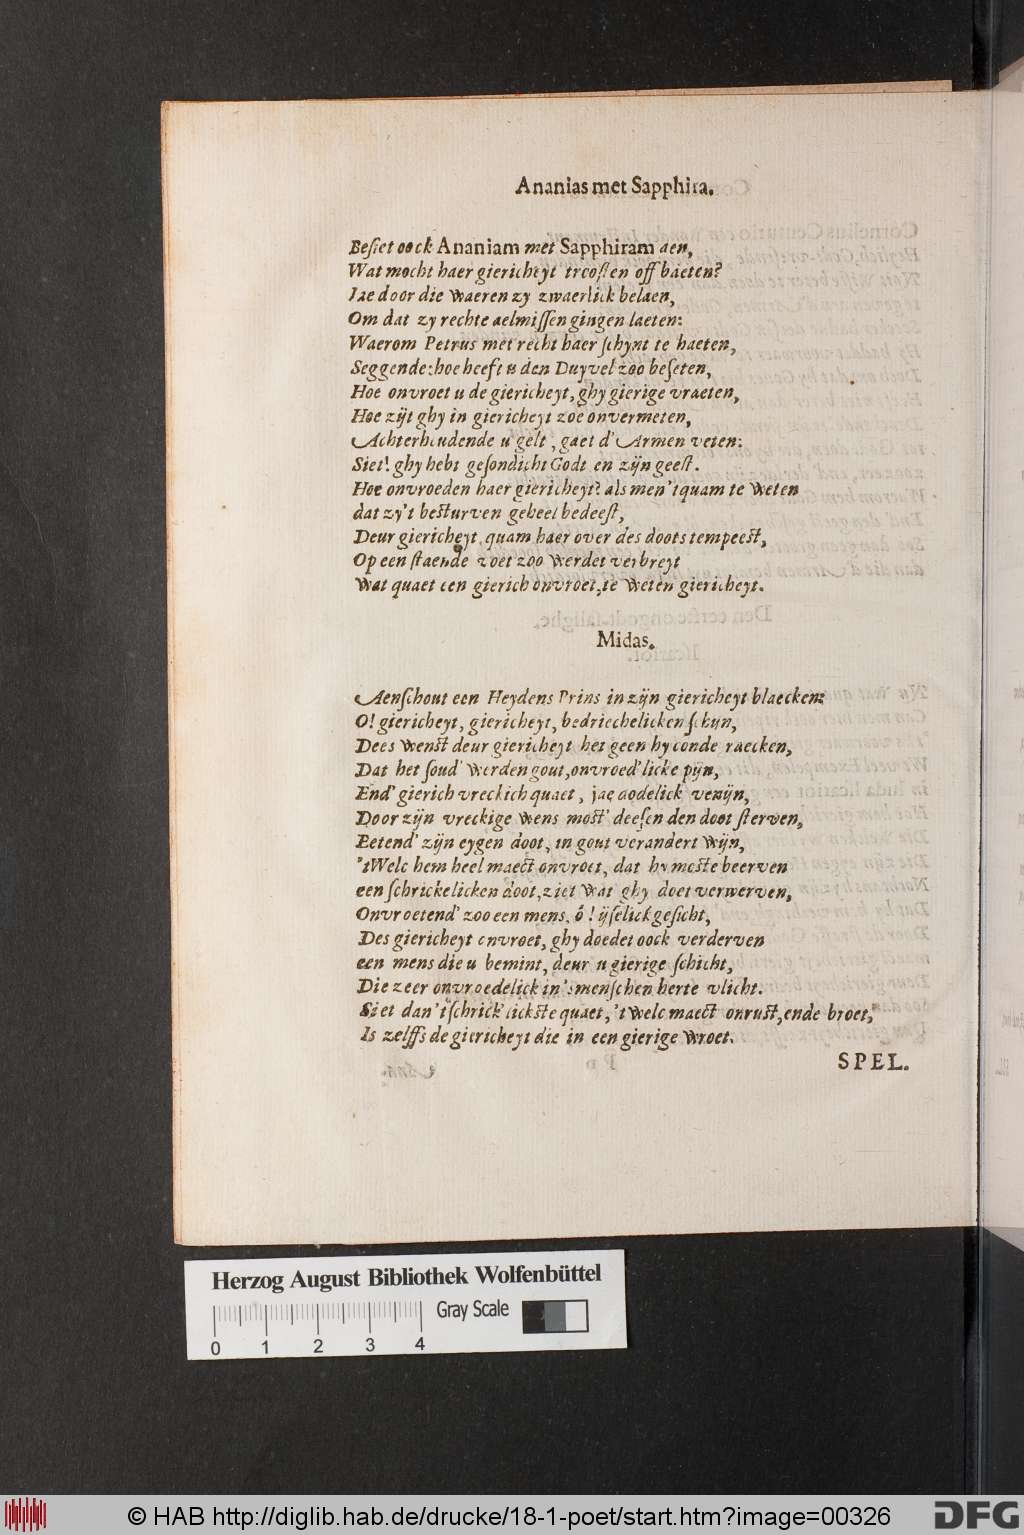 Ananias met Sapphira.
Besiet oock Ananiam met Sapphiram aen,
Wat mocht haer giericheyt troosten off baeten?
Iae door die waeren zy zwaerlick belaen,
Om dat zy rechte aelmissen gingen laeten:
Waerom Petrus met recht haer schynt te haeten,
Seggende: hoe heeft u den Duyvel zoo beseten,
Hoe onvroet u de giericheyt, ghy gierige vraeten,
Hoe zijt ghy in giericheyt zoe onvermeten,
Achterhoudende u gelt, gaet d'Armen veten:
Siet! ghy hebt gesondicht Godt en zijn geest.
Hoe onvroeden haer giericheyt? als men 't quam te weten
dat zy't besturven geheel bedeest,
Deur giericheyt quam haer over des doots tempeest,
Op een staende voet zoo werdet verbreyt
Wat quaet een gierich onvroet, te weten giericheyt.
Midas.
Aenschout een Heydens Prins in zijn giericheyt blaecken:
O! giericheyt, giericheyt, bedriechelicken schijn,
Dees wenst deur giericheyt het geen hy conde raecken,
Dat het soud' werden gout, onvroed'licke pijn,
End' gierich vreckich quaet, jae dodelick venijn,
Door zijn vreckige wens most' deesen den doot sterven,
Eetend' zijn eygen doot, in gout verandert wijn,
'tWelc hem heel maect onvroet, dat hy moste beerven
een schrickelicken doot, ziet wat ghy doet verwerven,
Onvroetend' zoo een mens, ô! ijselick gesicht,
Des giericheyt onvroet, ghy doedet oock verderven
een mens die u bemint, deur u gierige schicht,
Die zeer onvroedelick in 'smenschen herte vlicht.
Siet dan 't schrick'lickste quaet, 't welc maect onrust, ende broet,
Is zelffs de giericheyt die in een gierige wroet.
SPEL.
Herzog August Bibliothek Wolfenbüttel
Gray Scale
0 1 2 3 4
© HAB http://diglib.hab.de/drucke/18-1-poet/start.htm?image=00326
DFG